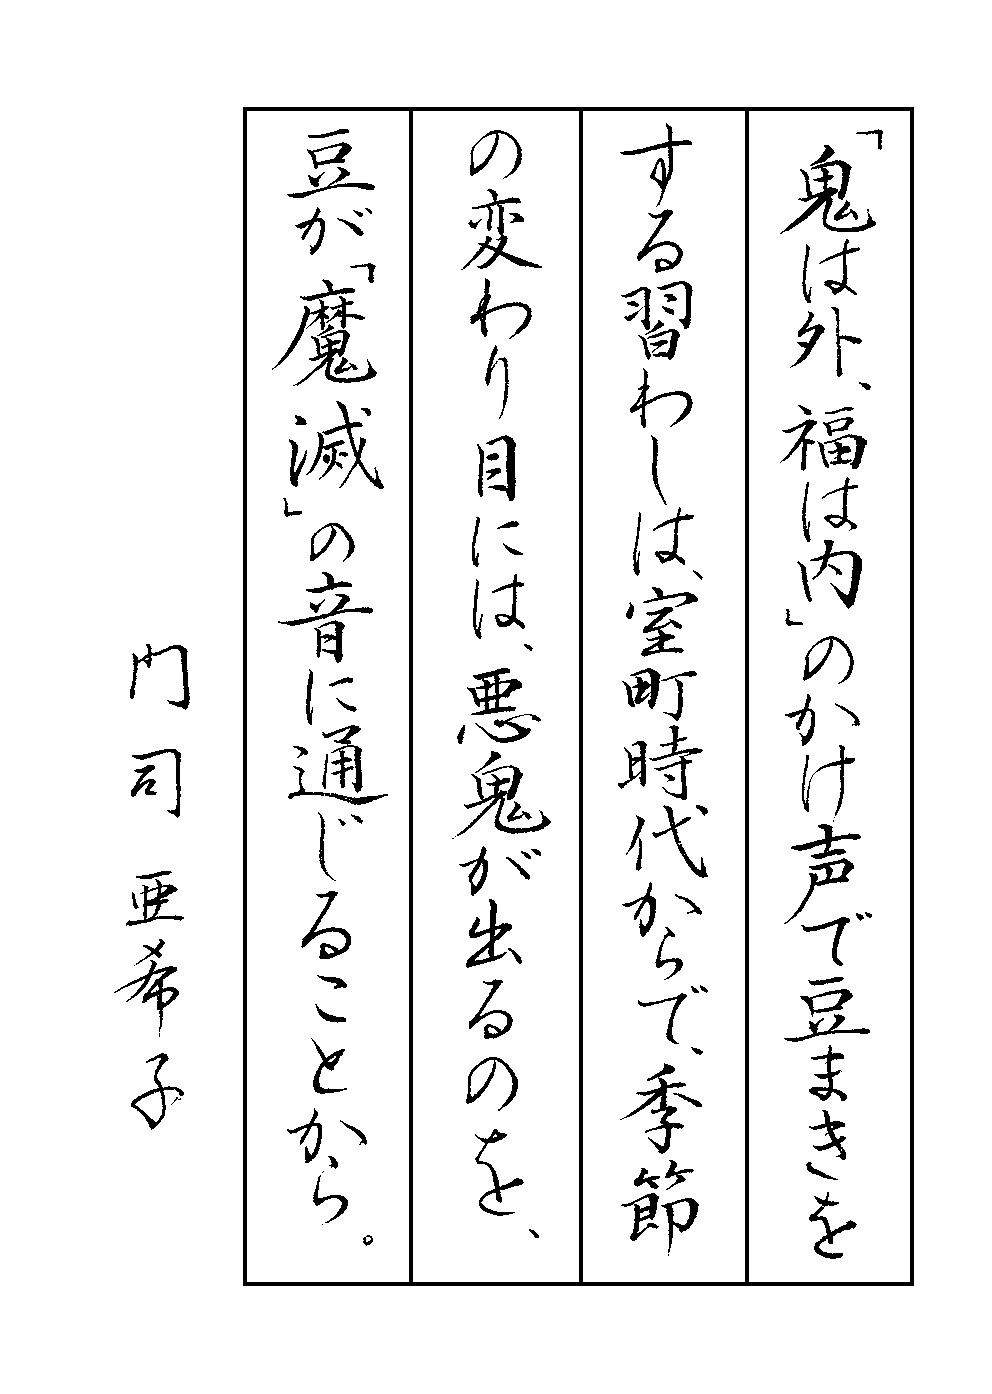 「鬼は外、福は内」のかけ声で豆まきを
する習わしは、室町時代からで、季節
の変わり目には、悪鬼が出るのを、
豆が「魔滅」の音に通じることから。
門司 亜希子